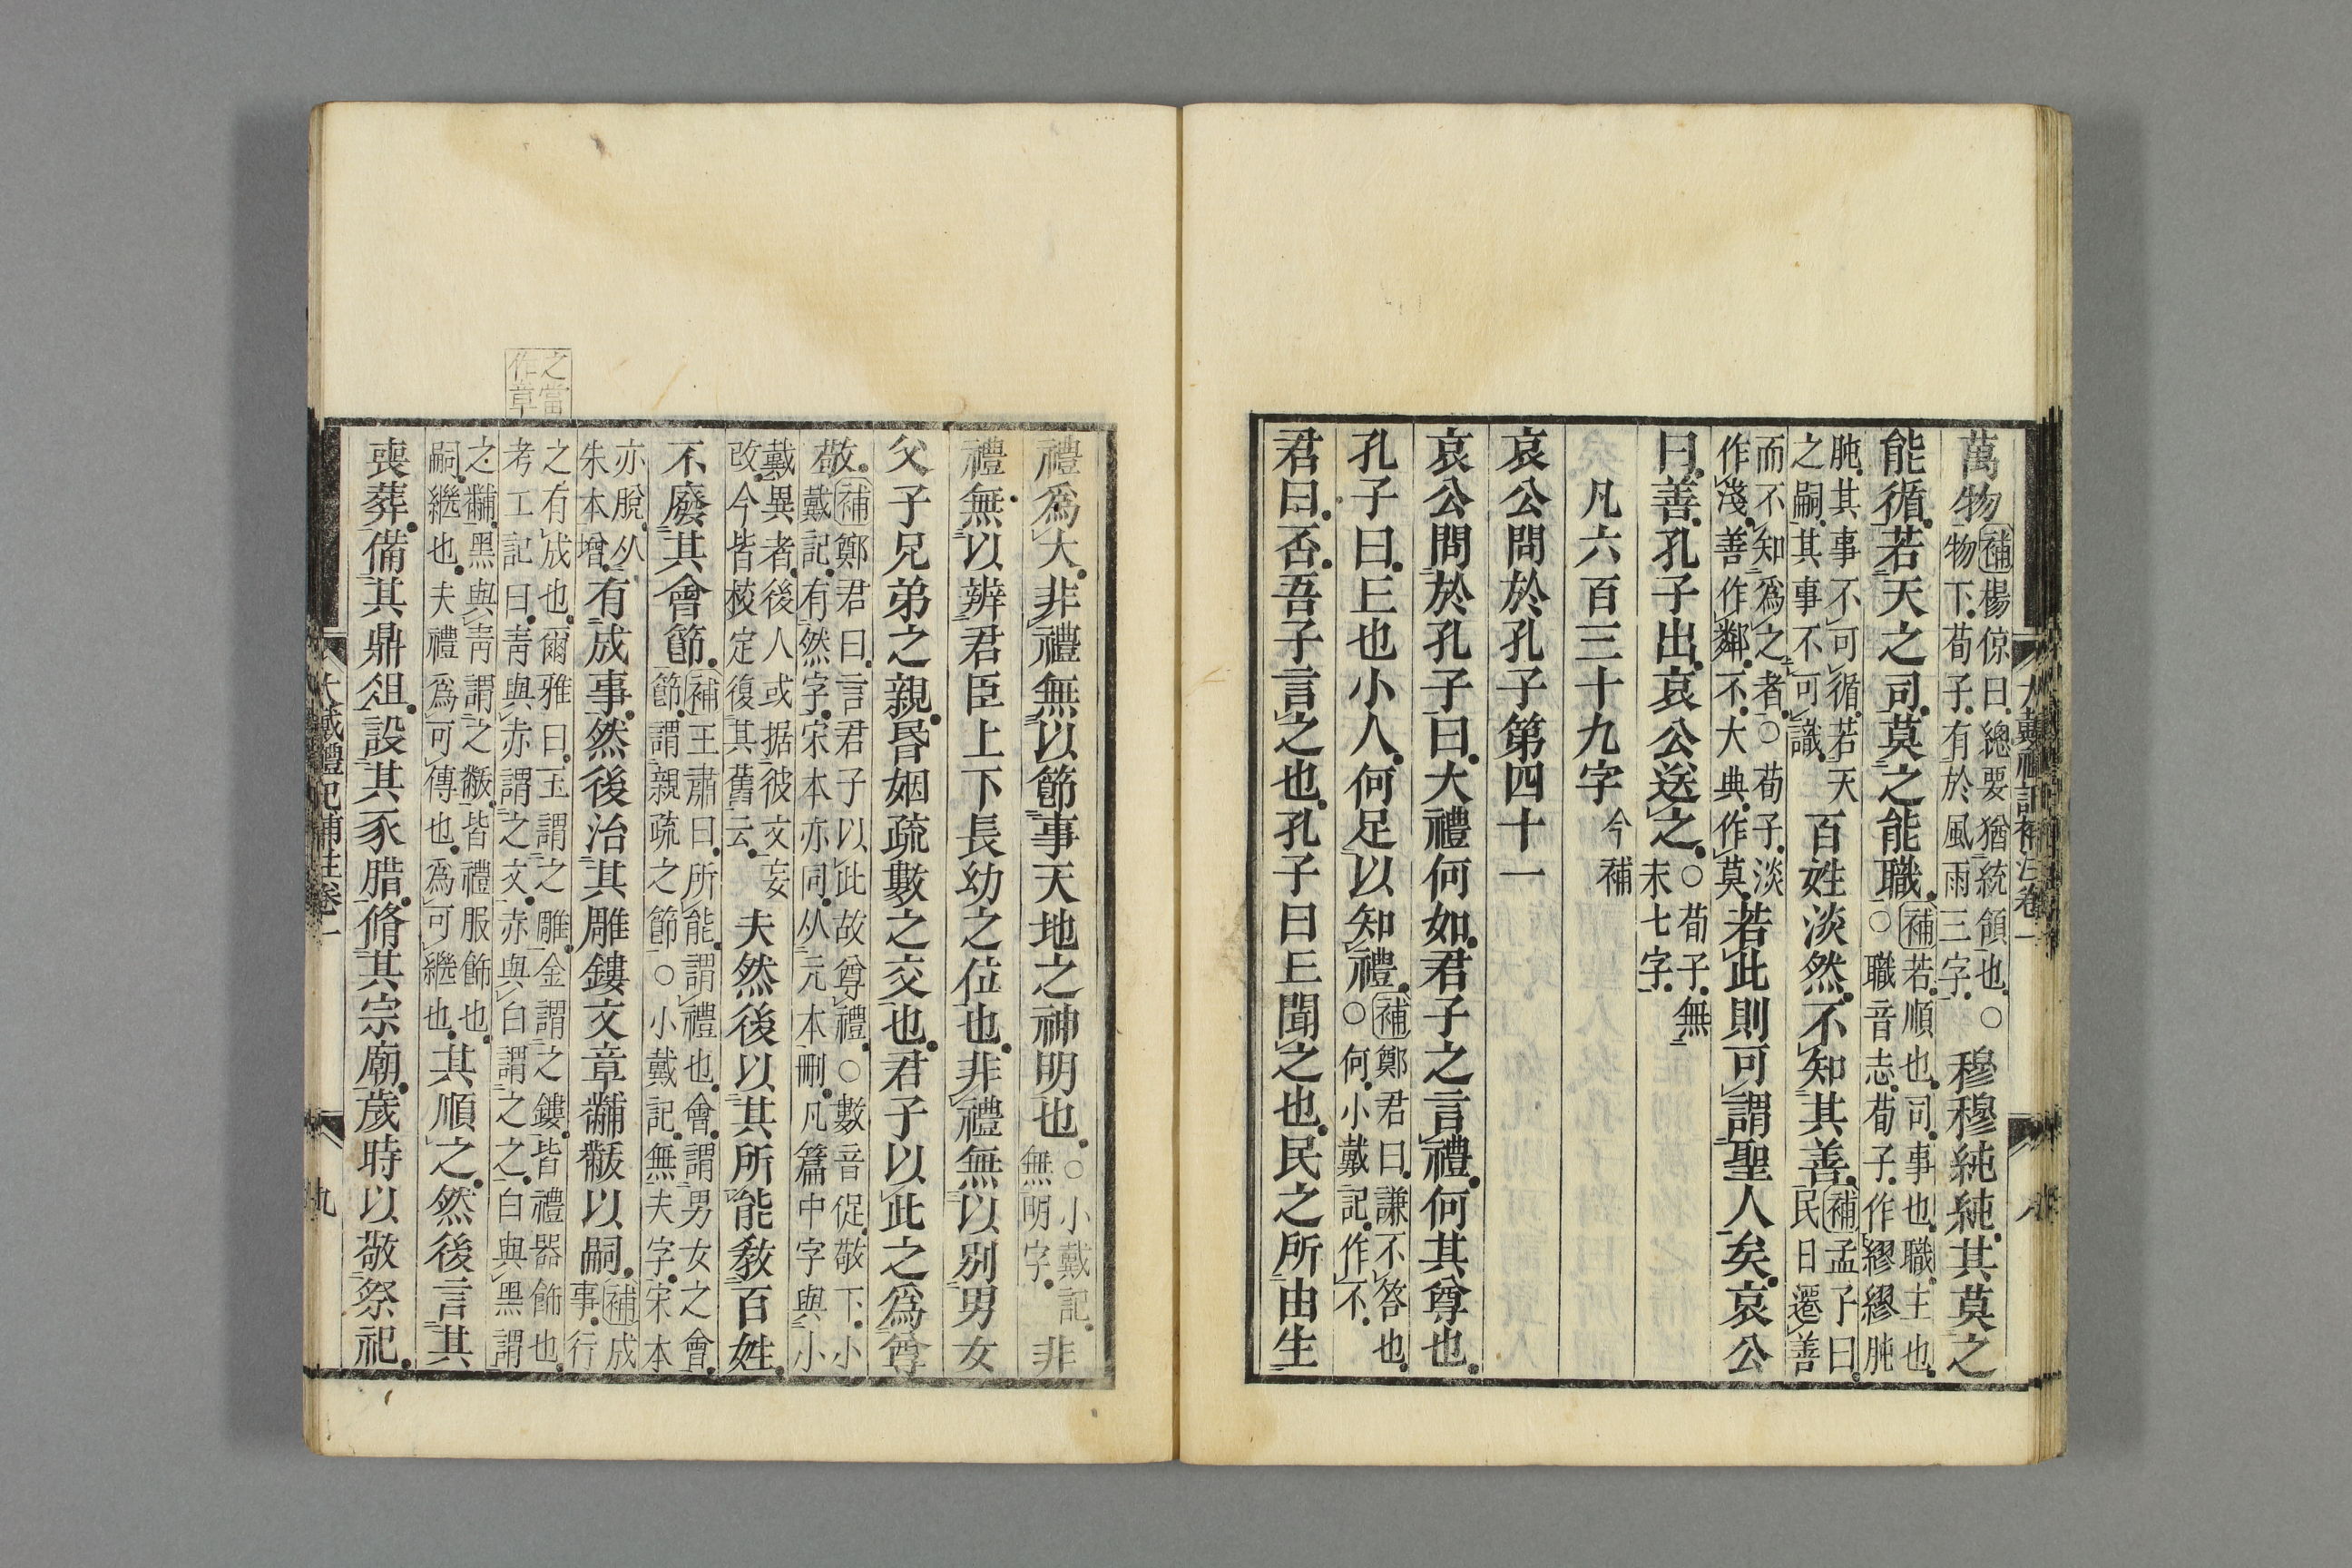 大戴禮記補注卷一
萬物補楊倞曰總要猶統領也○
物下荀子有於風雨三字穆穆純純其莫之
能循若天之司莫之能職補若順也司事也職主也
○職音志荀子作繆繆肫
肫其事不可循若天
之嗣其事不可識百姓淡然不知其善補孟子曰
民日遷善
而不知爲之者○荀子淡
作淺善作鄰不大典作莫若此則可謂聖人矣哀公
曰善孔子出哀公送之○荀子無
末七字
凡六百三十九字今補
哀公問於孔子第四十一
哀公問於孔子曰大禮何如君子之言禮何其尊也
孔子曰丘也小人何足以知禮補鄭君曰謙不答也
○何小戴記作不
君曰否吾子言之也孔子曰丘聞之也民之所由生
禮爲大非禮無以節事天地之神明也○小戴記
無明字非
禮無以辨君臣上下長幼之位也非禮無以別男女
父子兄弟之親昏姻疏數之交也君子以此之爲尊
敬補鄭君曰言君子以此故尊禮○數音促敬下小
戴記有然字宋本亦同从元本刪凡篇中字與小
戴異者後人或据彼文妄
改今皆校定復其舊云夫然後以其所能敎百姓
不廢其會節補王肅曰所能謂禮也會謂男女之會
節謂親疏之節○小戴記無夫字宋本
亦脫从
朱本增有成事然後治其雕鏤文章黼黻以嗣補成
事行
之有成也爾雅曰玉謂之雕金謂之鏤皆禮器飾也
考工記曰靑與赤謂之文赤與白謂之之白與黑謂
之當
作章
之黼黑與靑謂之黻皆禮服飾也
嗣繼也夫禮爲可傳也爲可繼也其順之然後言其
喪葬備其鼎俎設其豕腊脩其宗廟歲時以敬祭祀
大戴禮記補注卷一
九